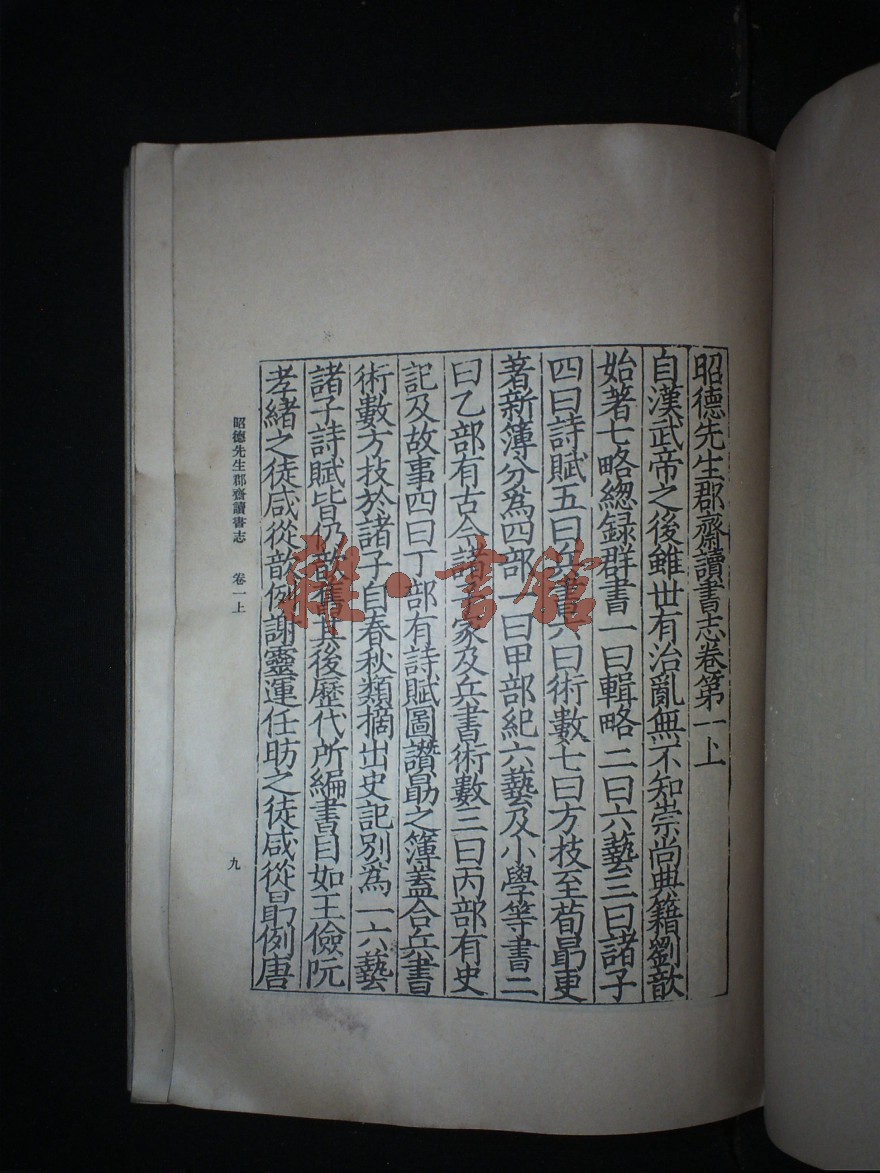 昭德先生郡齋讀書志卷第一上
自漢武帝之後雖世有治亂無不知崇尚典籍劉歆
始著七略緫録群書一曰輯略二曰六藝三曰諸子
四曰詩賦五曰兵書六曰術數七曰方技至荀勗更
著新簿分爲四部一曰甲部紀六藝及小學等書二
曰乙部有古今諸子家及兵書術數三曰丙部有史
記及故事四曰丁部有詩賦圖讚勗之簿蓋合兵書
術數方技於諸子自春秋類摘出史記别爲一六藝
諸子詩賦皆仍歆舊其後歷代所編書目如王儉阮
孝緒之徒咸從歆例謝靈運任昉之徒咸從勗例唐
昭德先生郡齋讀書志 卷一上
九
雜·書館